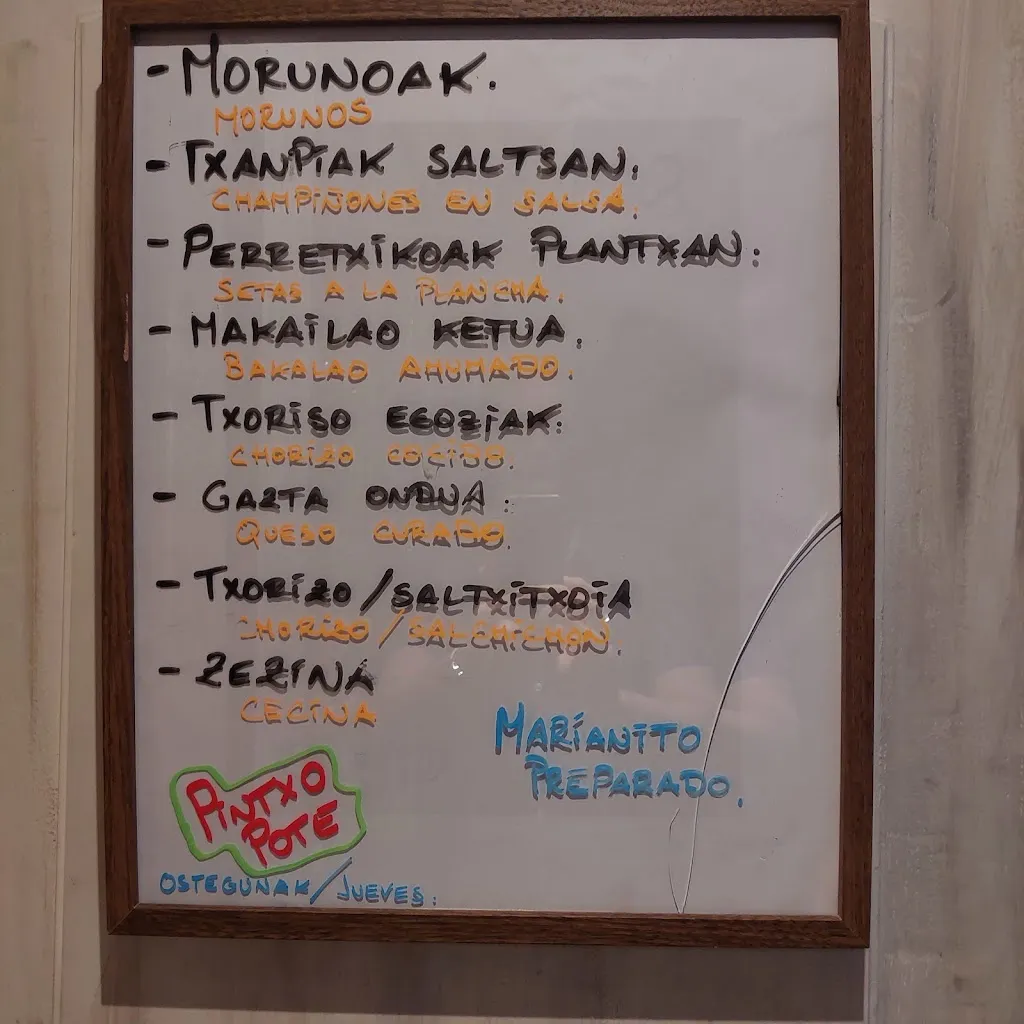 - MORUNOAK.
MORUNOS
- TXANPIAK SALTSAN.
CHAMPIÑONES EN SALSA.
- PERRETXIKOAK PLANTXAN.
SETAS A LA PLANCHA.
- MAKAILAO KETUA.
BAKALAO AHUMADO.
- TXORISO EGOZIAK.
CHORIZO COCIDO.
- GAZTA ONDUA.
QUESO CURADO.
- TXORIZO/SALTXITXOIA
CHORIZO/SALCHICHON.
- ZEZINA
CECINA
MARIANITO
PREPARADO.
PINTXO
POTE
OSTEGUNAK/JUEVES.